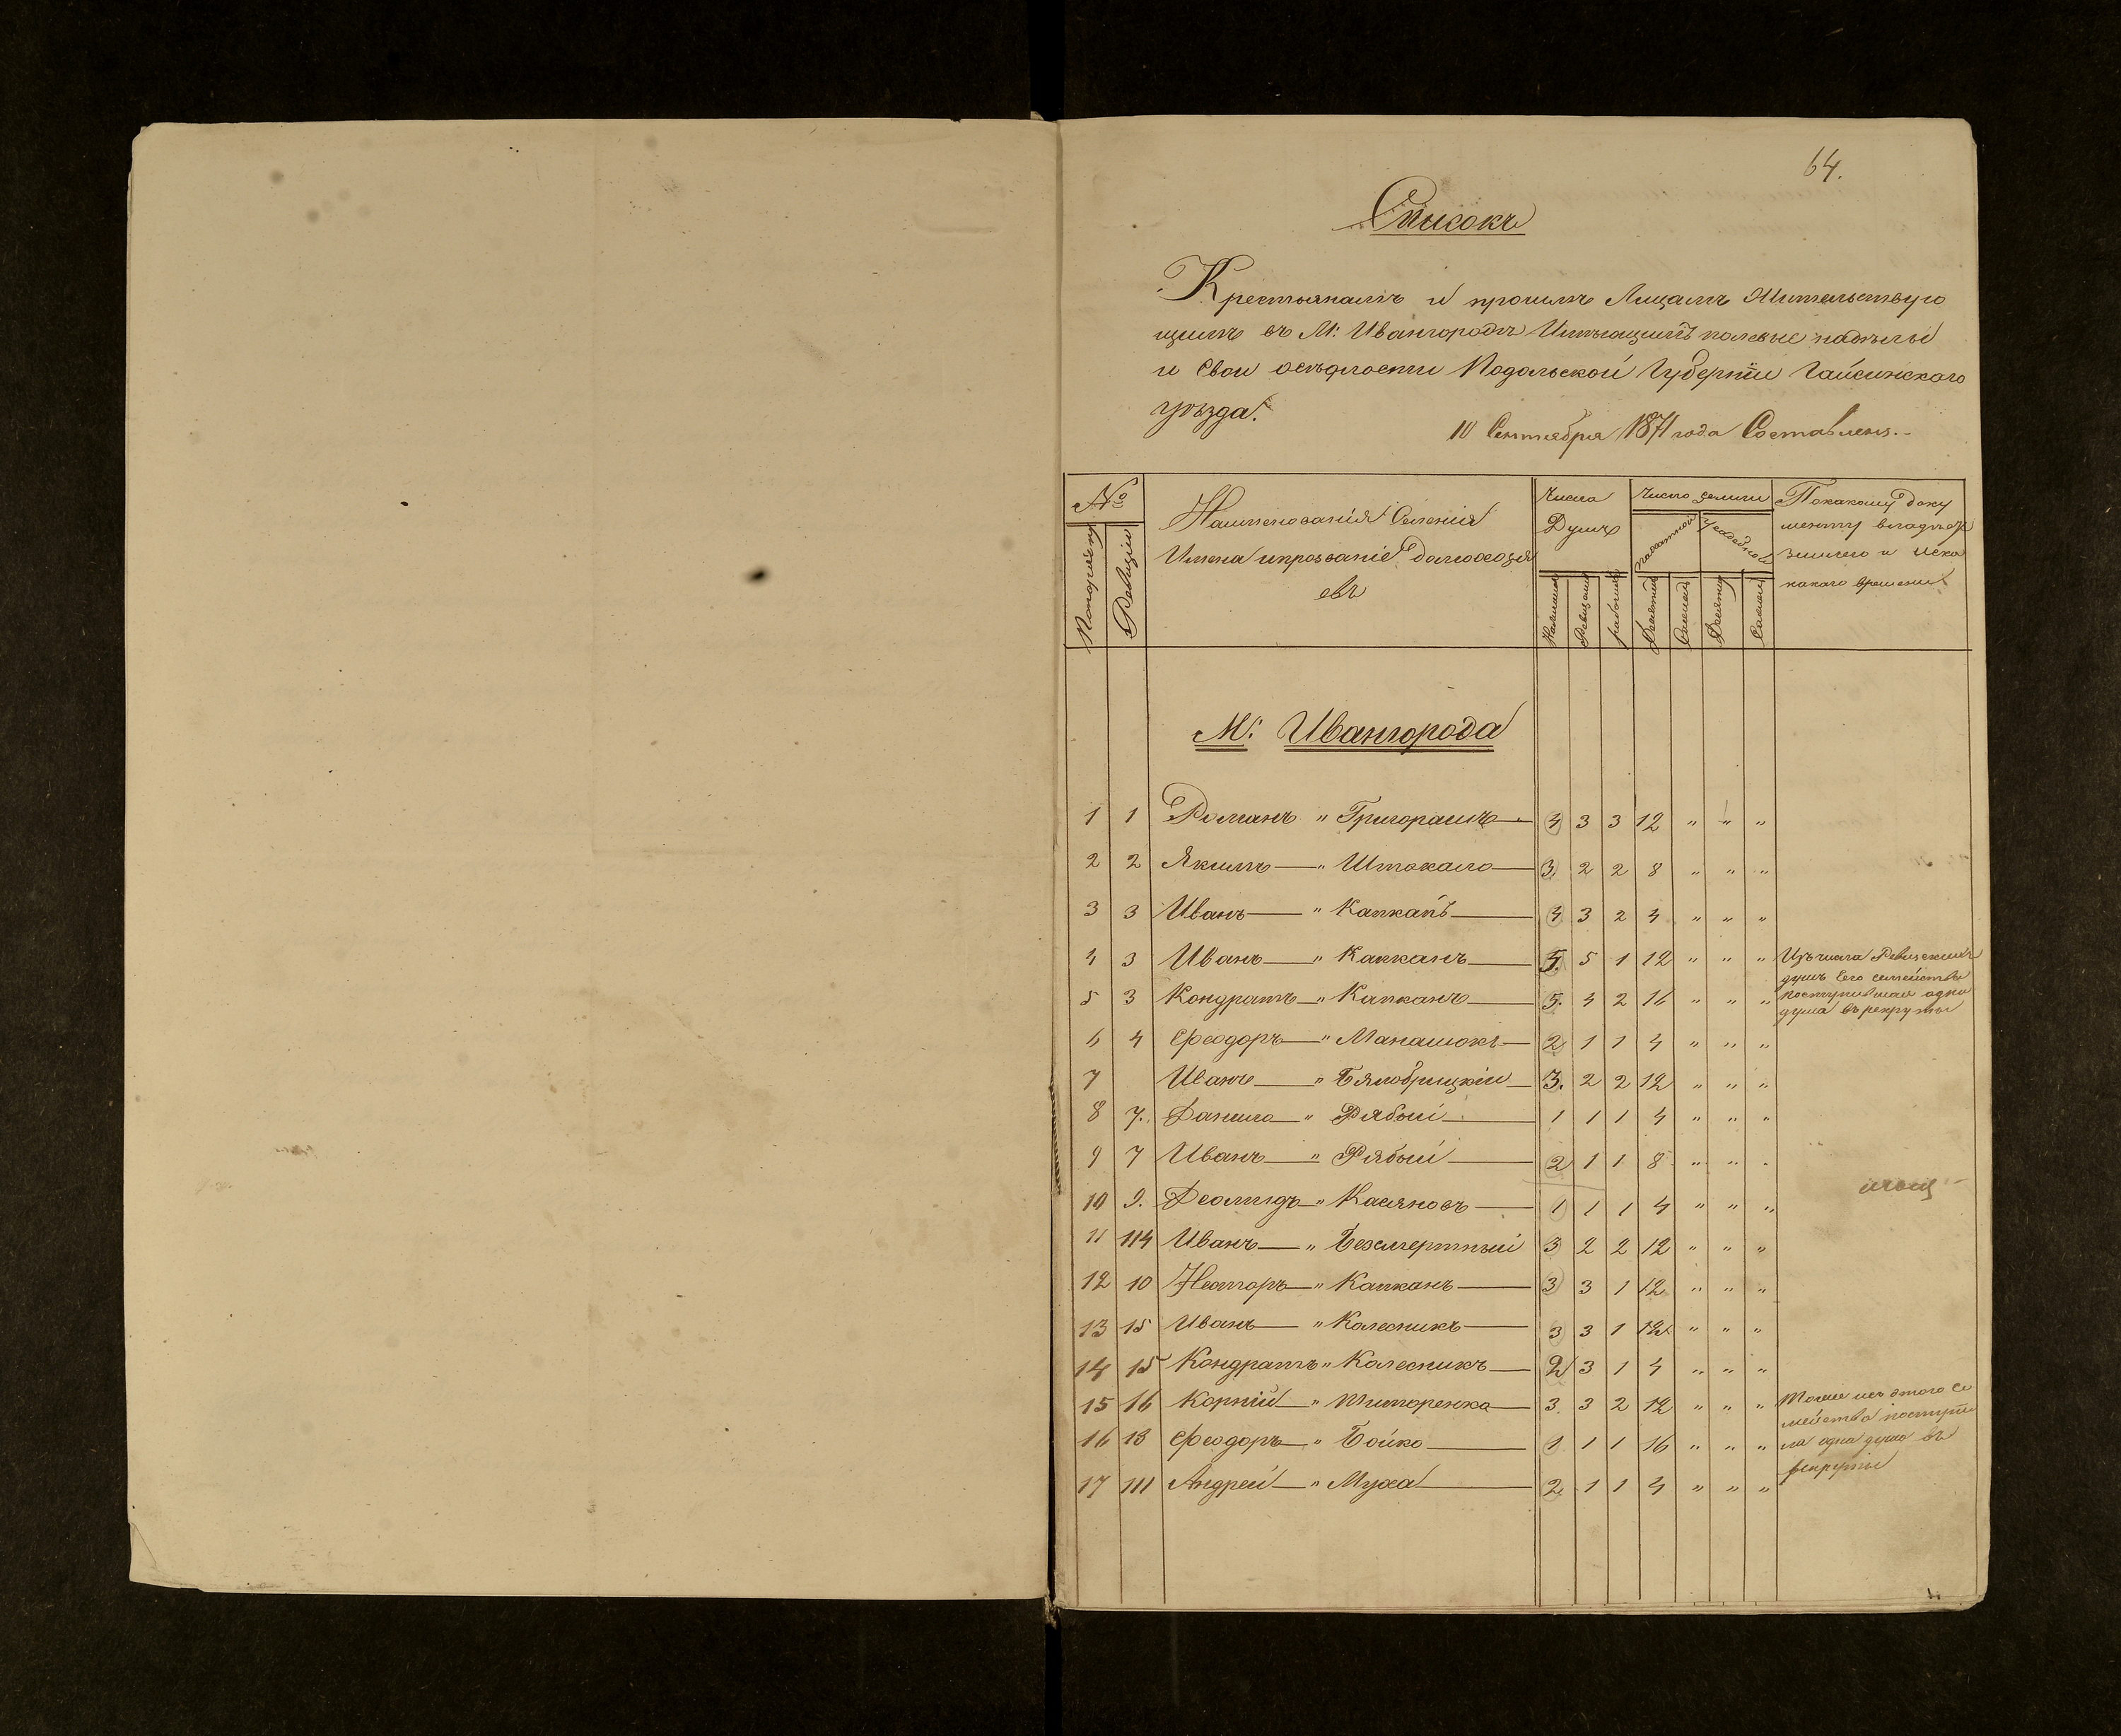 64.
Списокъ
Крестьянамъ и прочимъ Лицамъ Жительствую
щимъ въ М: Ивангородѣ Имѣющимъ полевые надѣлы
и Свои осѣдлости Подольской Губерніи Гайсинского
уѣзда.
10 Сентября 1871 года Составленъ.
№ Наименованія Селенія Число Число земли По какому доку
Имена и прозваніе домохозя Душъ менту владѣ
евъ Пахатной Усадебной землею и иска
какаго времени
По порядку Ревизіи Наличныхъ Ревизскихъ рабочихъ Десятин Сажень Десятин Сажень
М: Ивангорода
1 1 Романъ " Григорашъ 4 3 3 12 " " "
2 2 Якимъ " Штокало 3 2 2 8 " " "
3 3 Иванъ " Капканъ 4 3 2 4 " " "
4 3 Иванъ " Капканъ 5. 5 1 12 " " " Изъ числа Ревизскихъ
душъ Его семейства
5 3 Кондратъ " Капканъ 5. 4 2 16 " " " поступившая одна
душа въ рекруты
6 4 Феодоръ " Манашокъ 2 1 1 4 " " "
7 Иванъ " Бялобрицкій 3. 2 2 12 " " "
8 7. Данило " Рябый 1 1 1 4 " " "
9 7 Иванъ " Рябый 2 1 1 8 " " "
10 9. Деомидъ " Касяновъ 1 1 1 4 " " "
11 114 Иванъ " Безсмертный 3 2 2 12 " " "
12 10 Несторъ " Капканъ 3 3 1 12 " " "
13 15 Иванъ " Колесникъ 3 3 1 12 " " "
14 15 Кондратъ " Колесникъ 2 3 1 4 " " "
15 16 Корній " Титоренко 3. 3 2 12 " " " Тоже изъ этого Се
мейства поступи
16 13 Феодоръ " Бойко 1 1 1 16 " " " ла одна душа въ
рекруты
17 111 Андрей " Муха 2 1 1 4 " " "